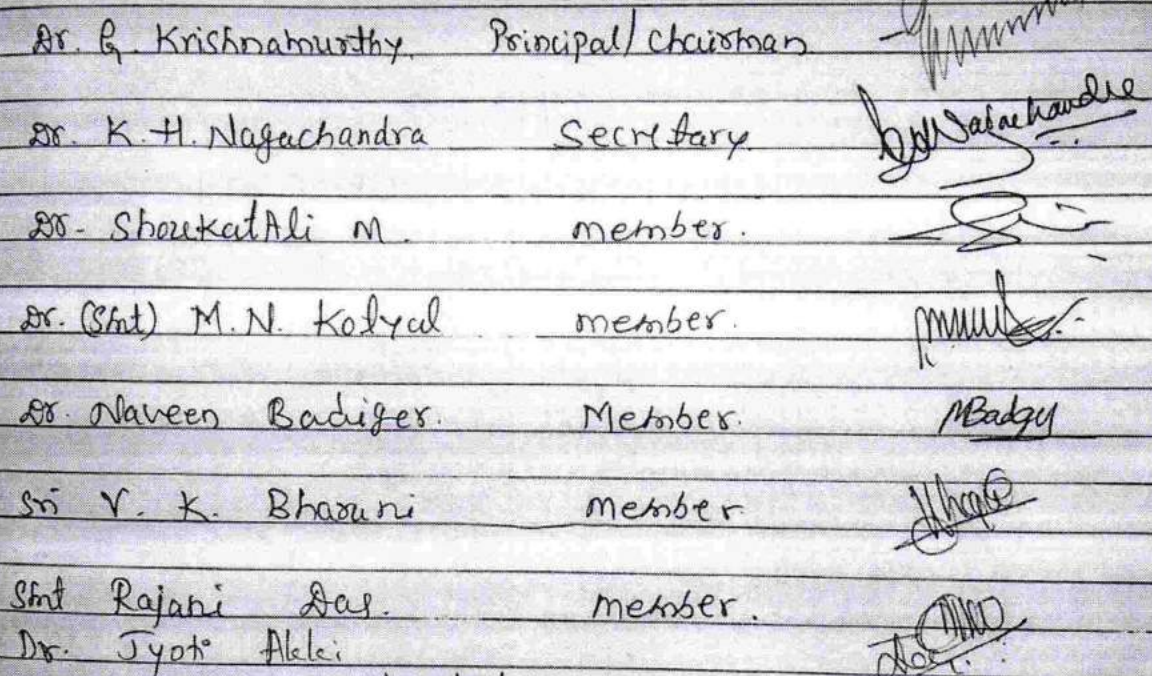 Dr. G. Krishnamurthy. Principal/Chairman
Dr. K. H. Nagachandra Secretary
Dr. ShoukatAli M. member.
Dr. (Smt) M. N. Kolyal member.
Dr. Naveen Badiger. Member. NBadgy
Sri V. K. Bharani member
Smt Rajani Das. member.
Dr. Jyoti Akki